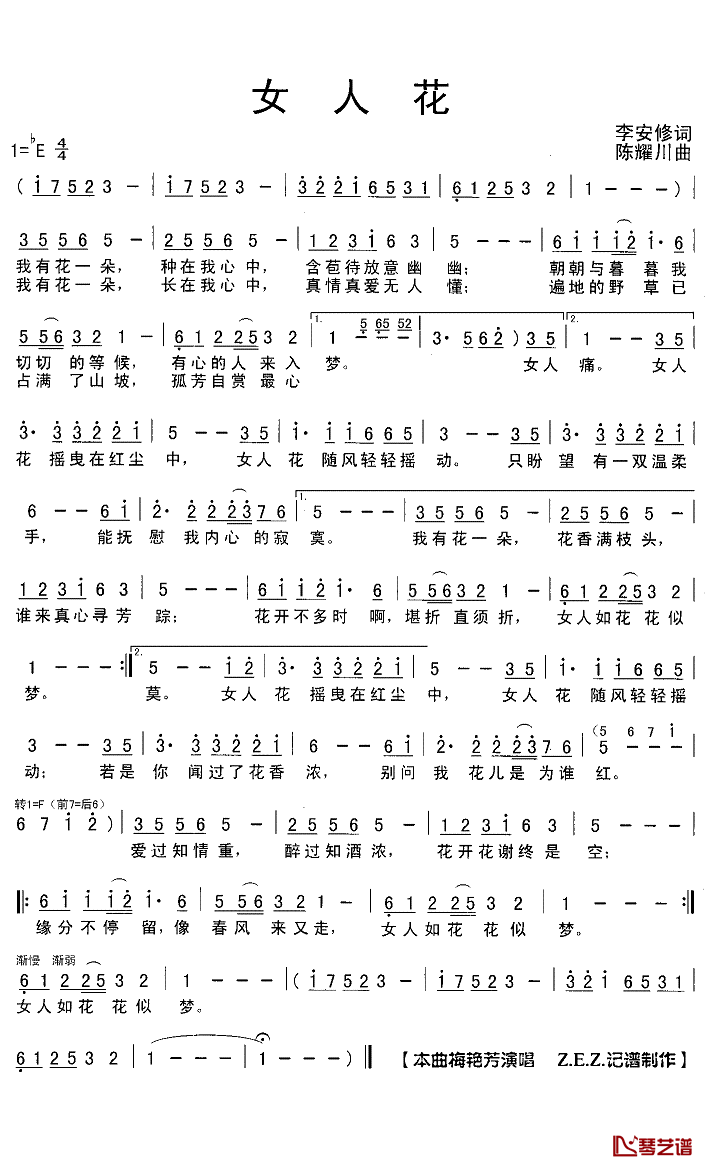 女 人 花
李安修词
1=♭E 4/4 陈耀川曲
( i 7 5 2 3 - | i 7 5 2 3 - | 3 2 2 1 6 5 3 1 | 6 1 2 5 3 2 | 1 - - - )
3 5 5 6 5 - | 2 5 5 6 5 - | 1 2 3 i 6 3 | 5 - - - | 6 i i i 2 i · 6
我有花一朵， 种在我心中， 含苞待放意幽幽； 朝朝与暮暮我
我有花一朵， 长在我心中， 真情真爱无人懂； 遍地的野草已
5 5 6 3 2 1 - | 6 1 2 2 5 3 2 | 1. 1 - - - 5 65 52 | 3 · 5 6 2 ) 3 5 | 2. 1 - - 3 5
切切的等候， 有心的人来入梦。 女人痛。 女人
占满了山坡， 孤芳自赏最心
3 · 3 3 2 2 1 | 5 - - 3 5 | i · i i 6 6 5 | 5 - - 3 5 | 3 · 3 3 2 2 i
花 摇曳在红尘中， 女人花随风轻轻摇动。 只盼望有一双温柔
6 - - 6 i | 2 · 2 2 2 3 7 6 | 1. 5 - - - | 3 5 5 6 5 - | 2 5 5 6 5 -
手， 能抚慰我内心的寂寞。 我有花一朵， 花香满枝头，
1 2 3 i 6 3 | 5 - - - | 6 i i i 2 i · 6 | 5 5 6 3 2 1 - | 6 1 2 2 5 3 2
谁来真心寻芳踪； 花开不多时啊，堪折直须折， 女人如花花似
1 - - - :‖ 2. 5 - - i 2 | 3 · 3 3 2 2 i | 5 - - 3 5 | i · i i 6 6 5
梦。 莫。 女人花摇曳在红尘中， 女人花随风轻轻摇
3 - - 3 5 | 3 · 3 3 2 2 i | 6 - - 6 i | 2 · 2 2 2 3 7 6 | (5 6 7 i 5 - - -
动； 若是你闻过了花香浓， 别问我花儿是为谁红。
转1=F（前7=后6）
6 7 i 2 ) | 3 5 5 6 5 - | 2 5 5 6 5 - | 1 2 3 i 6 3 | 5 - - -
爱过知情重， 醉过知酒浓， 花开花谢终是空；
‖: 6 i i i 2 i · 6 | 5 5 6 3 2 1 - | 6 1 2 2 5 3 2 | 1 - - - :‖
缘分不停留，像春风来又走， 女人如花花似梦。
渐慢 渐弱
6 1 2 2 5 3 2 | 1 - - - | ( i 7 5 2 3 - | i 7 5 2 3 - | 3 2 i 6 5 3 1
女人如花花似梦。
6 1 2 5 3 2 | 1 - - - | 1 - - - ) ‖ 【本曲梅艳芳演唱 Z.E.Z.记谱制作】
琴艺谱